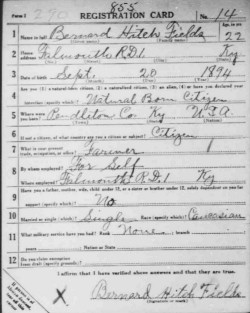 855
Form 1 REGISTRATION CARD No. 14
1 Name in full Bernard Hitch Fields Age, in yrs. 22
2 Home address Falmouth R.D.1 Ky
3 Date of birth Sept. 20 1894
4 Are you (1) a natural-born citizen, (2) a naturalized citizen, (3) an alien, (4) or have you declared your
intention (specify which)? Natural Born Citizen
5 Where were you born? Pendleton Co. Ky U.S.A.
6 If not a citizen, of what country are you a citizen or subject? Citizen
7 What is your present trade, occupation, or office? Farmer 1
8 By whom employed? For Self
Where employed? Falmouth R.D.1 Ky
9 Have you a father, mother, wife, child under 12, or a sister or brother under 12, solely dependent on you for
support (specify which)? No
10 Married or single (which)? Single Race (specify which)? Caucasian
11 What military service have you had? Rank None ; branch
years ; Nation or State
12 Do you claim exemption from draft (specify grounds)?
I affirm that I have verified above answers and that they are true.
X Bernard Hitch Fields
(Signature or mark)